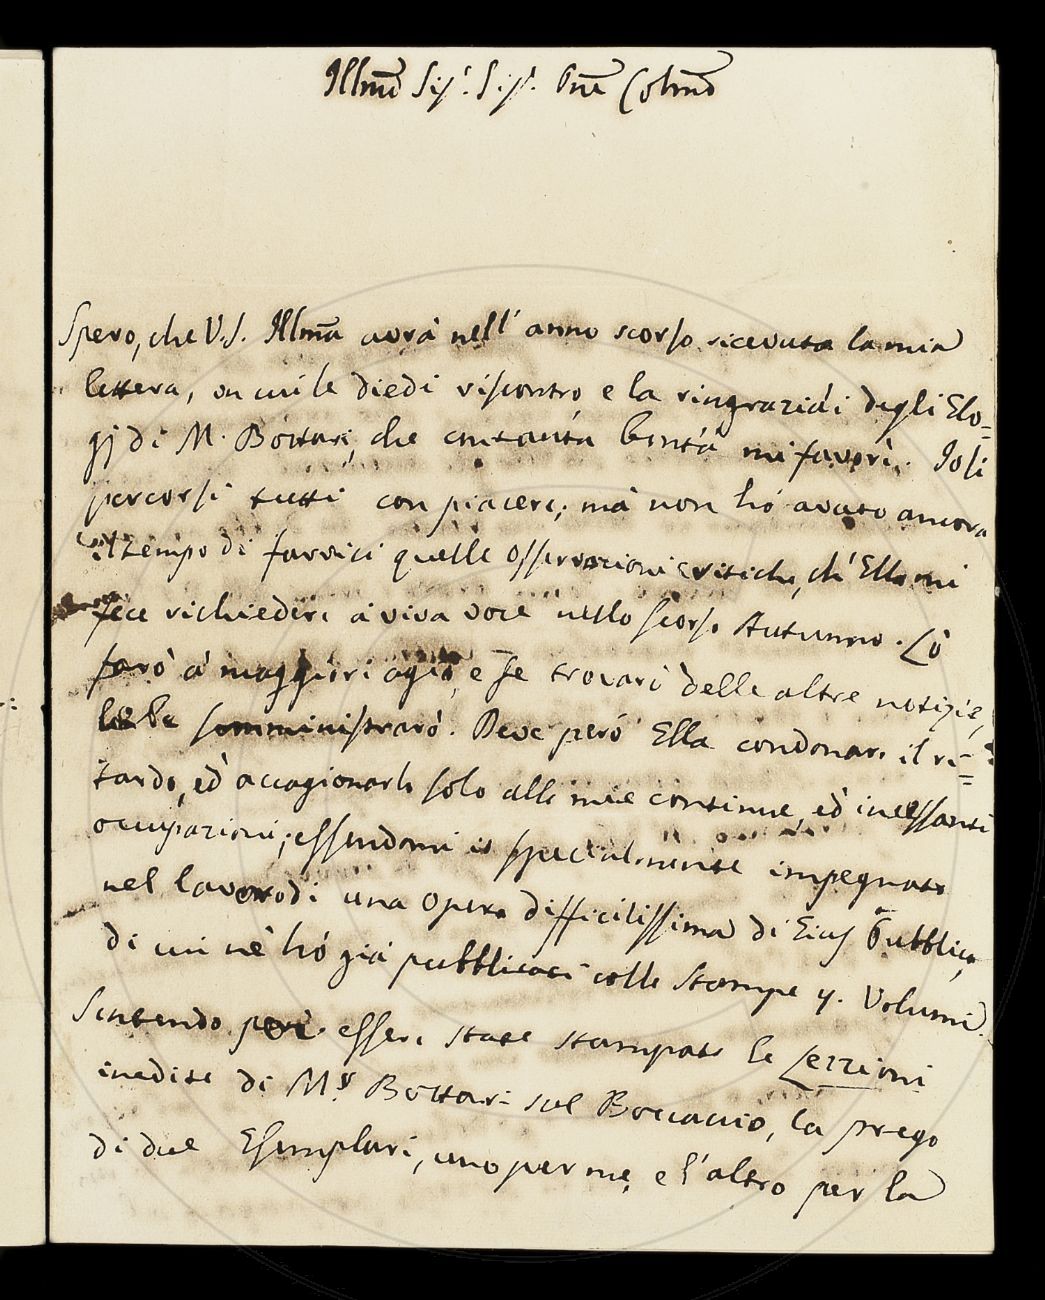 Illmõ Sigr. Sigr. Pñe Colmõ
Spero, che V.S. Illmã avrà nell' anno scorso ricevuta la mia
lettera, in cui le diedi riscontro e la ringraziai degli Elo=
gj di M. Bottari, che con tanta bontà mi favorì. Io li
percorsi tutti con piacere; mà non hò avuto ancora
il tempo di farvici quelle osservazioni critiche, ch' Ella mi
fece richiedere à viva voce nello scorso Autunno. Lo
farò à maggiori agio, e se troverò delle altre notizie,
le somministrarò. Deve però Ella condonare il ri=
tardo, ed accagionarlo solo alle mie continue, ed incessanti
occupazioni; essendomi io specialmente impegnato
nel lavoro di una Opera difficilissima di Eius Pubblico,
di cui nè hò già pubblicati colle stampe 4. Volumi.
Sentendo però essere state stampate le Lezzioni
inedite di Mr. Bottari sul Boccacio, la prego
di due Esemplari, uno per me, e l'altro per la